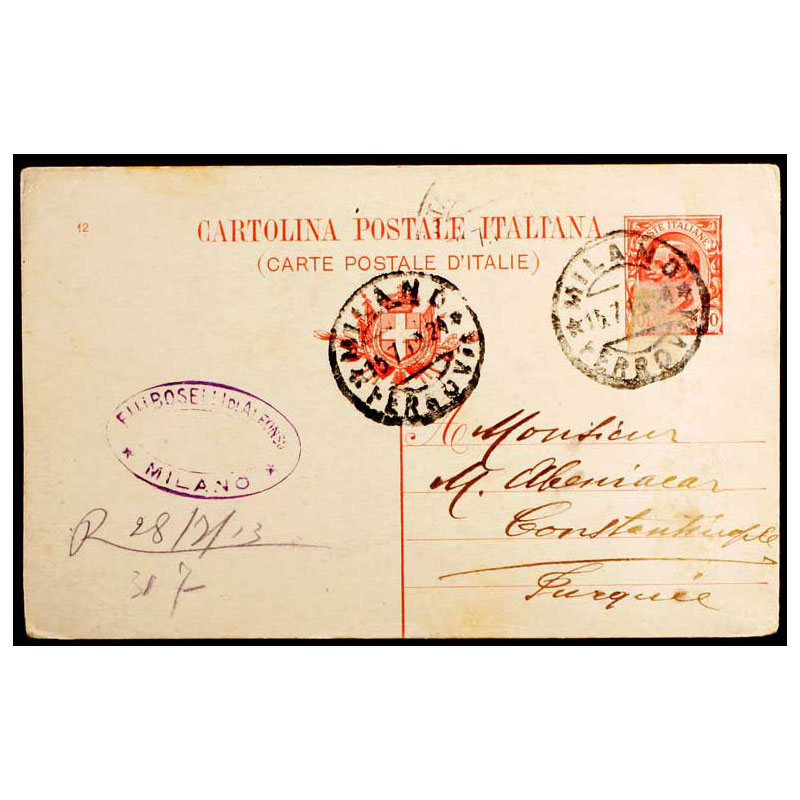 12
CARTOLINA POSTALE ITALIANA
(CARTE POSTALE D'ITALIE)
POSTE ITALIANE
MILANO
15.7
FERROVIA
MILANO
FERROVIA
F.LLI BOSELLI DI ALFONSO
MILANO
A Monsieur
M. Abeniacar
Constantinople
Turquie
R 28/7/13
31 7